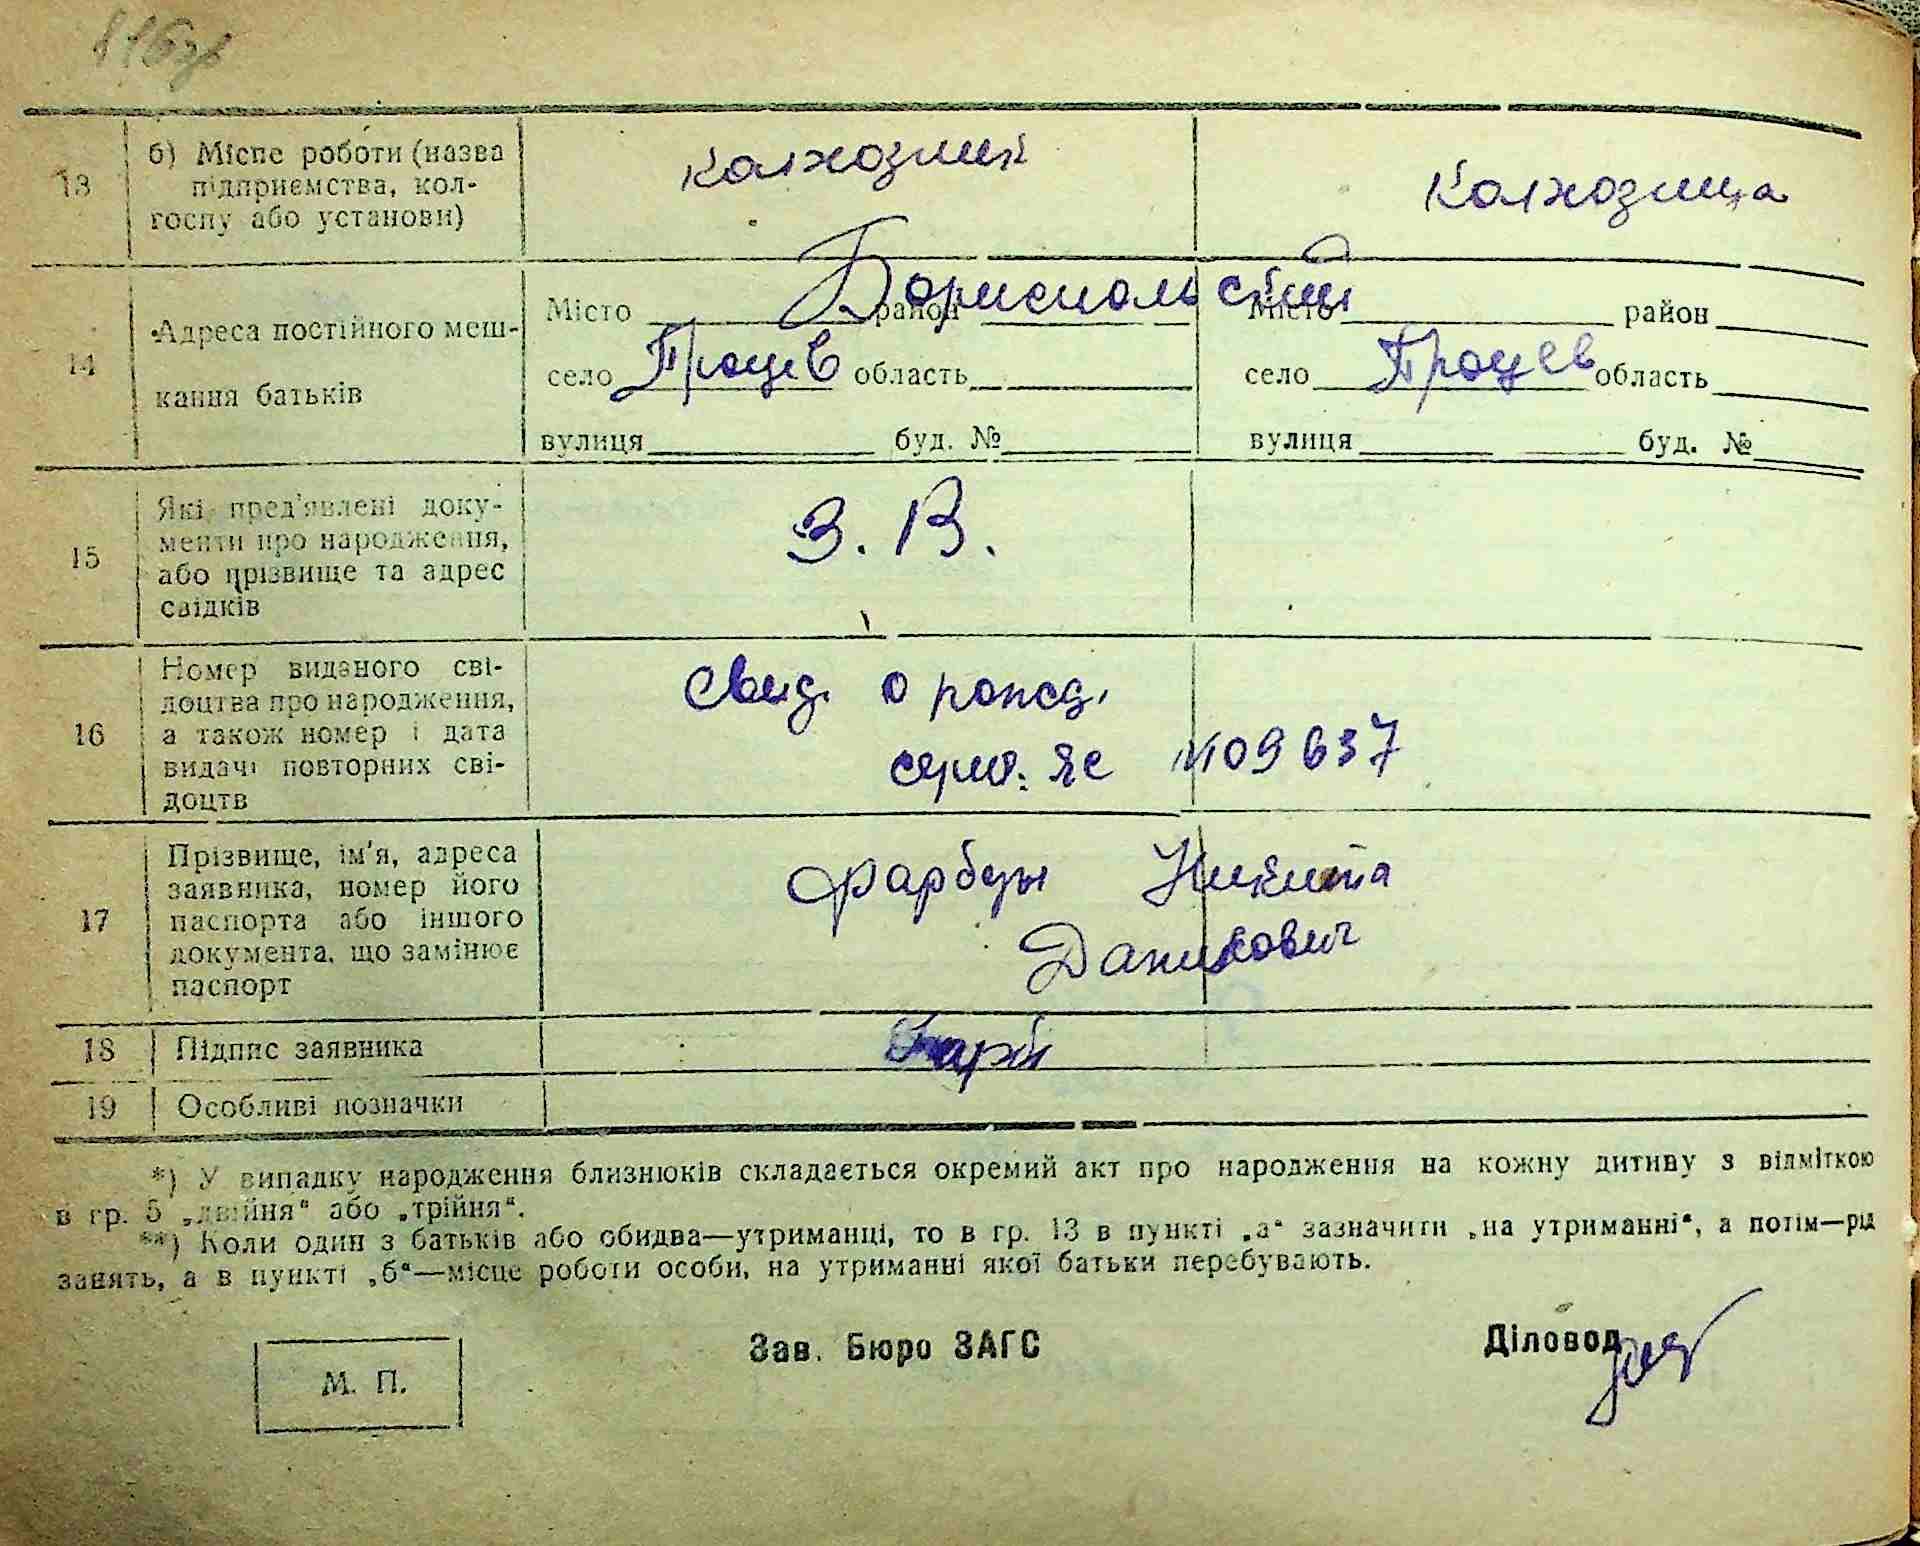 816 зв
13
б) Місце роботи (назва
підприємства, кол-
госпу або установи)
колхозник
колхозница
14
Адреса постійного меш-
кання батьків
Бориспольский
Місто район Місто район
село Процев область село Процев область
вулиця буд. № вулиця буд. №
15
Які пред'явлені доку-
менти про народження,
або прізвище та адрес
свідків
З. В.
16
Номер виданого сві-
доцтва про народження,
а також номер і дата
видачі повторних сві-
доцтв
Свид. о рожд.
серия: ЯС №109637
17
Прізвище, ім'я, адреса
заявника, номер його
паспорта або іншого
документа, що замінює
паспорт
Никита
Данилович
18 Підпис заявника
19 Особливі позначки
*) У випадку народження близнюків складається окремий акт про народження на кожну дитину з відміткою
в гр. 5 „двійня“ або „трійня“.
**) Коли один з батьків або обидва—утриманці, то в гр. 13 в пункті „а“ зазначити „на утриманні“, а потім—рід
занять, а в пункті „б“—місце роботи особи, на утриманні якої батьки перебувають.
М. П.
Зав. Бюро ЗАГС
Діловод